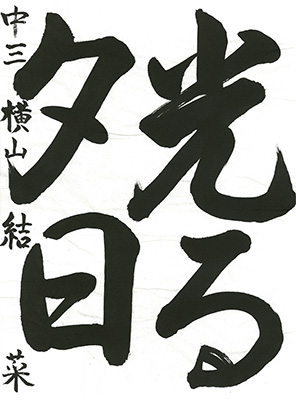 光る
夕日
中三 横山結菜